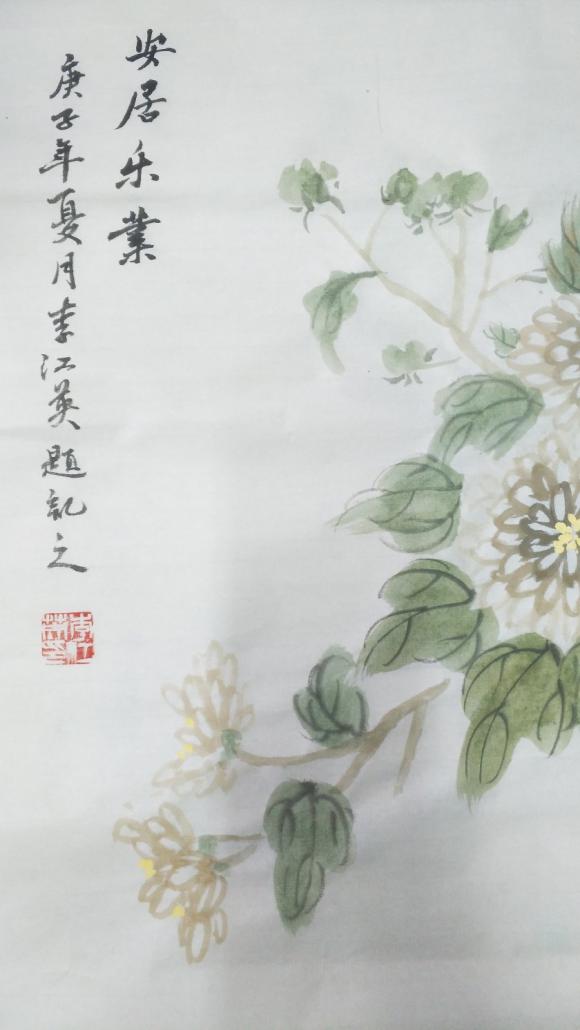 安居乐業
庚子年夏月李江英題記之